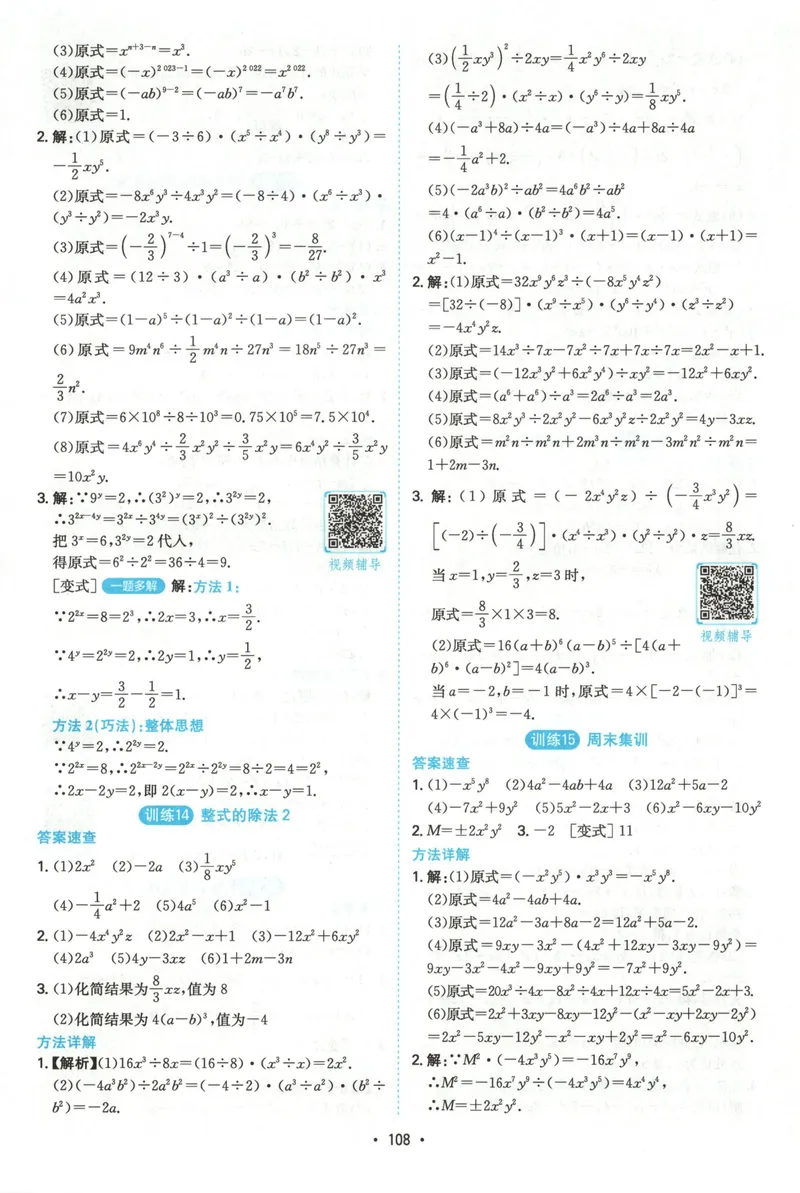 (3)原式=xⁿ⁺³⁻ⁿ=x³.
(4)原式=(-x)²⁰²³⁻¹=(-x)²⁰²²=x²⁰²².
(5)原式=(-ab)⁹⁻²=(-ab)⁷=-a⁷b⁷.
(6)原式=1.
2.解:(1)原式=(-3÷6)·(x⁵÷x⁴)·(y⁸÷y³)=
-1/2xy⁵.
(2)原式=-8x⁶y³÷4x³y²=(-8÷4)·(x⁶÷x³)·
(y³÷y²)=-2x³y.
(3)原式=(-2/3)⁷⁻⁴÷1=(-2/3)³=-8/27.
(4)原式=(12÷3)·(a³÷a)·(b²÷b²)·x³
=4a²x³.
(5)原式=(1-a)⁵÷(1-a)²÷(1-a)=(1-a)².
(6)原式=9m⁴n⁶÷1/2m⁴n÷27n³=18n⁵÷27n³=
2/3n².
(7)原式=6×10⁸÷8÷10³=0.75×10⁵=7.5×10⁴.
(8)原式=4x⁶y⁴÷2/3x²y²÷3/5x²y=6x⁴y²÷3/5x²y
=10x²y.
3.解:∵9ʸ=2,∴(3²)ʸ=2,∴3²ʸ=2,
∴3²ˣ⁻⁴ʸ=3²ˣ÷3⁴ʸ=(3ˣ)²÷(3²ʸ)².
把3ˣ=6,3²ʸ=2代人,
得原式=6²÷2²=36÷4=9.
视频辅导
[变式] 一题多解 解:方法1:
∵2²ˣ=8=2³,∴2x=3,∴x=3/2.
∵4ʸ=2²ʸ=2,∴2y=1,∴y=1/2,
∴x-y=3/2-1/2=1.
方法2(巧法):整体思想
∵4ʸ=2,∴2²ʸ=2.
∵2²ˣ=8,∴2²ˣ⁻²ʸ=2²ˣ÷2²ʸ=8÷2=4=2²,
∴2x-2y=2,即2(x-y)=2,∴x-y=1.
训练14 整式的除法2
答案速查
1.(1)2x² (2)-2a (3)1/8xy⁵
(4)-1/4a²+2 (5)4a⁵ (6)x²-1
2.(1)-4x⁴y²z (2)2x²-x+1 (3)-12x²+6xy²
(4)2a³ (5)4y-3xz (6)1+2m-3n
3.(1)化简结果为8/3xz,值为8
(2)化简结果为4(a-b)³,值为-4
方法详解
1.【解析】(1)16x³÷8x=(16÷8)·(x³÷x)=2x².
(2)(-4a³b²)÷2a²b²=(-4÷2)·(a³÷a²)·(b²÷
b²)=-2a.
(3)(1/2xy³)²÷2xy=1/4x²y⁶÷2xy
=(1/4÷2)·(x²÷x)·(y⁶÷y)=1/8xy⁵.
(4)(-a³+8a)÷4a=(-a³)÷4a+8a÷4a
=-1/4a²+2.
(5)(-2a³b)²÷ab²=4a⁶b²÷ab²
=4·(a⁶÷a)·(b²÷b²)=4a⁵.
(6)(x-1)⁴÷(x-1)³·(x+1)=(x-1)·(x+1)=
x²-1.
2.解:(1)原式=32x⁹y⁶z³÷(-8x⁵y⁴z²)
=[32÷(-8)]·(x⁹÷x⁵)·(y⁶÷y⁴)·(z³÷z²)
=-4x⁴y²z.
(2)原式=14x³÷7x-7x²÷7x+7x÷7x=2x²-x+1.
(3)原式=(-12x³y²+6x²y⁴)÷xy²=-12x²+6xy².
(4)原式=(a⁶+a⁶)÷a³=2a⁶÷a³=2a³.
(5)原式=8x²y³÷2x²y²-6x³y²z÷2x²y²=4y-3xz.
(6)原式=m²n÷m²n+2m³n÷m²n-3m²n²÷m²n=
1+2m-3n.
3.解:(1)原式=(-2x⁴y²z)÷(-3/4x³y²)=
[(-2)÷(-3/4)]·(x⁴÷x³)·(y²÷y²)·z=8/3xz.
当x=1,y=2/3,z=3时,
原式=8/3×1×3=8.
视频辅导
(2)原式=16(a+b)⁶(a-b)⁵÷[4(a+
b)⁶·(a-b)²]=4(a-b)³.
当a=-2,b=-1时,原式=4×[-2-(-1)]³=
4×(-1)³=-4.
训练15 周末集训
答案速查
1.(1)-x⁵y⁸ (2)4a²-4ab+4a (3)12a²+5a-2
(4)-7x²+9y² (5)5x²-2x+3 (6)x²-6xy-10y²
2.M=±2x²y² 3.-2 [变式]11
方法详解
1.解:(1)原式=(-x²y⁵)·x³y³=-x⁵y⁸.
(2)原式=4a²-4ab+4a.
(3)原式=12a²-3a+8a-2=12a²+5a-2.
(4)原式=9xy-3x²-(4x²+12xy-3xy-9y²)=
9xy-3x²-4x²-9xy+9y²=-7x²+9y².
(5)原式=20x³÷4x-8x²÷4x+12x÷4x=5x²-2x+3.
(6)原式=2x²+3xy-8xy-12y²-(x²-xy+2xy-2y²)
=2x²-5xy-12y²-x²-xy+2y²=x²-6xy-10y².
2.解:∵M²·(-4x³y⁵)=-16x⁷y⁹,
∴M²=-16x⁷y⁹÷(-4x³y⁵)=4x⁴y⁴,
∴M=±2x²y².
·108·